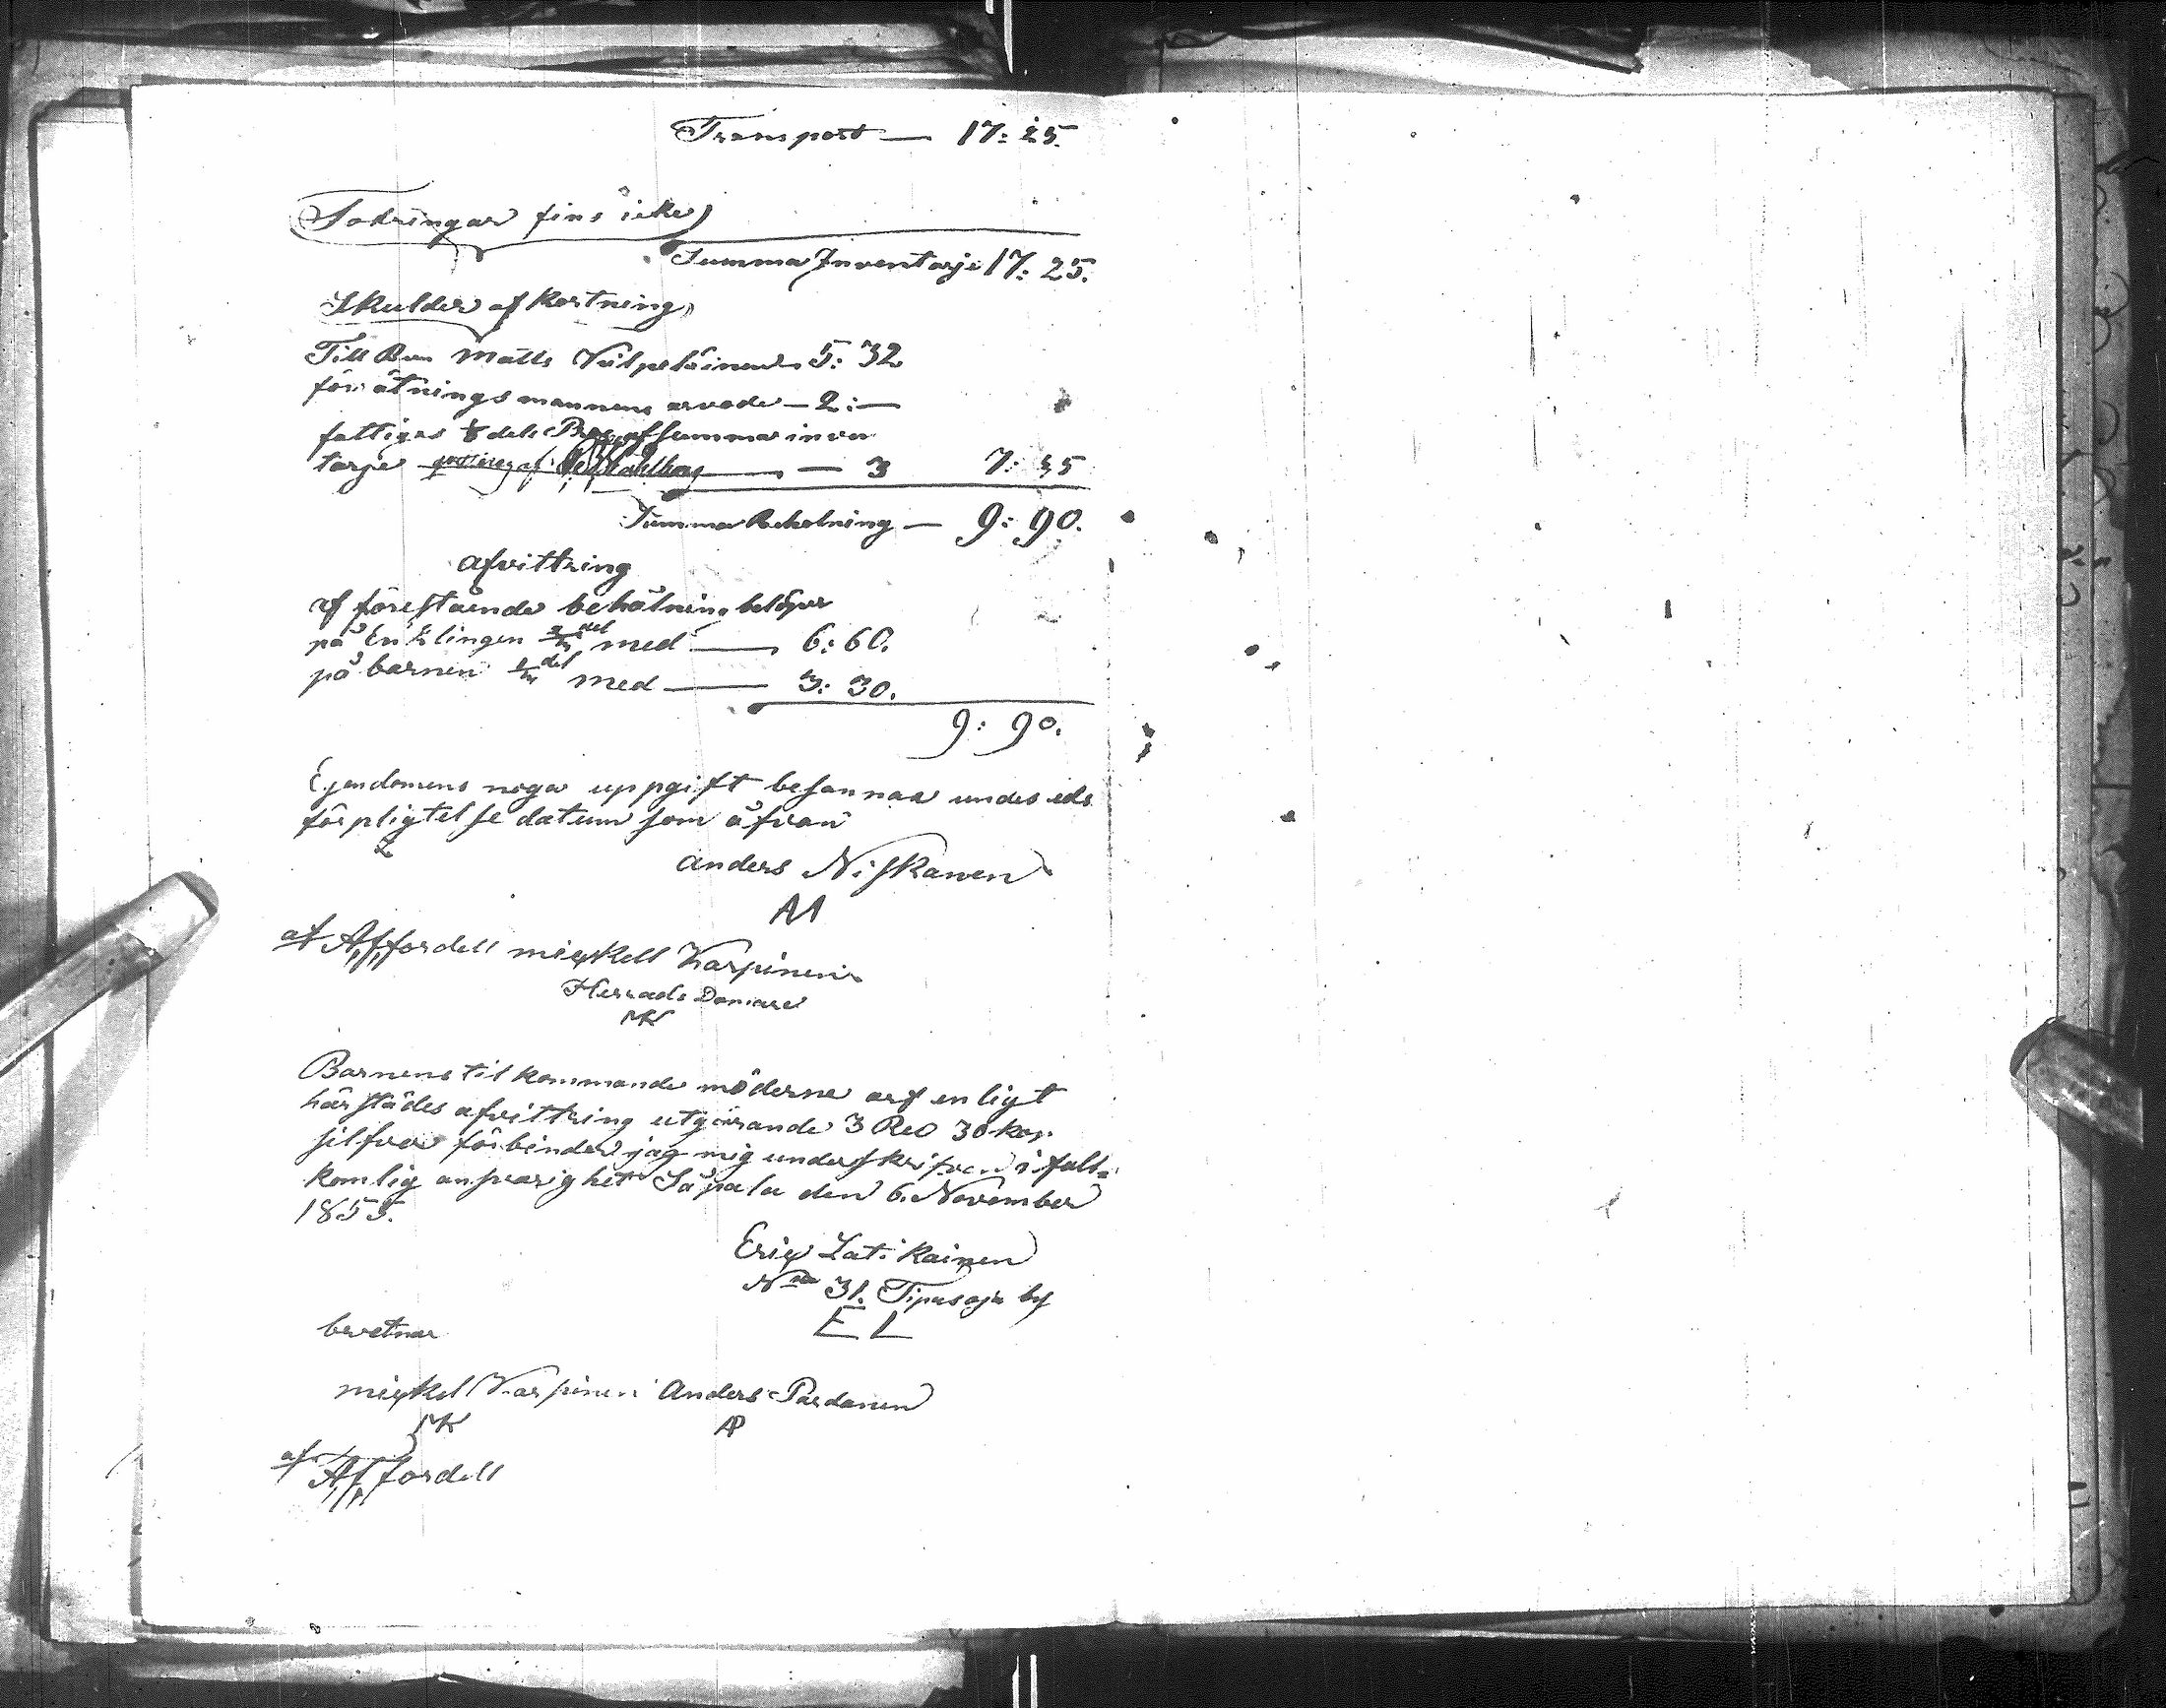 Transport — 17: 25.
Fodringar fins icke
Summa Inventarje 17: 25.
Skulder af kortning
Till Bon Matts Vilpoläinen 5: 32
för ätnings mannens arvode — 2: —
fattiges ⅛ dels Proc. af summa inven
tarje — 3 7: 35
Summa Beholning — 9: 90.
afvittring
af förestående behålning belöper
på Enklingen 2/3 del med — 6: 60.
på barnen 1/3 del med — 3: 30.
9: 90.
Ejendomens noga uppgift besannas under eds
förpligtelse datum som åfvan
Anders Niskanen
AN
af A. f. fordell mickell Karpinen
Herrads Domare
MK
Barnens til kommande möderne arf enligt
härstädes afvittring utgörande 3 Rub 30 kop.
silfver förbinder jag mig underskrifven i full=
komlig ansvarighet Säpala den 6. November
1855.
Eric Latikainen
Nro 31. Tipasoja by
E L
bevetnar
mickel Karpinen Anders Pardanen
MK AP
af A. f. fordell